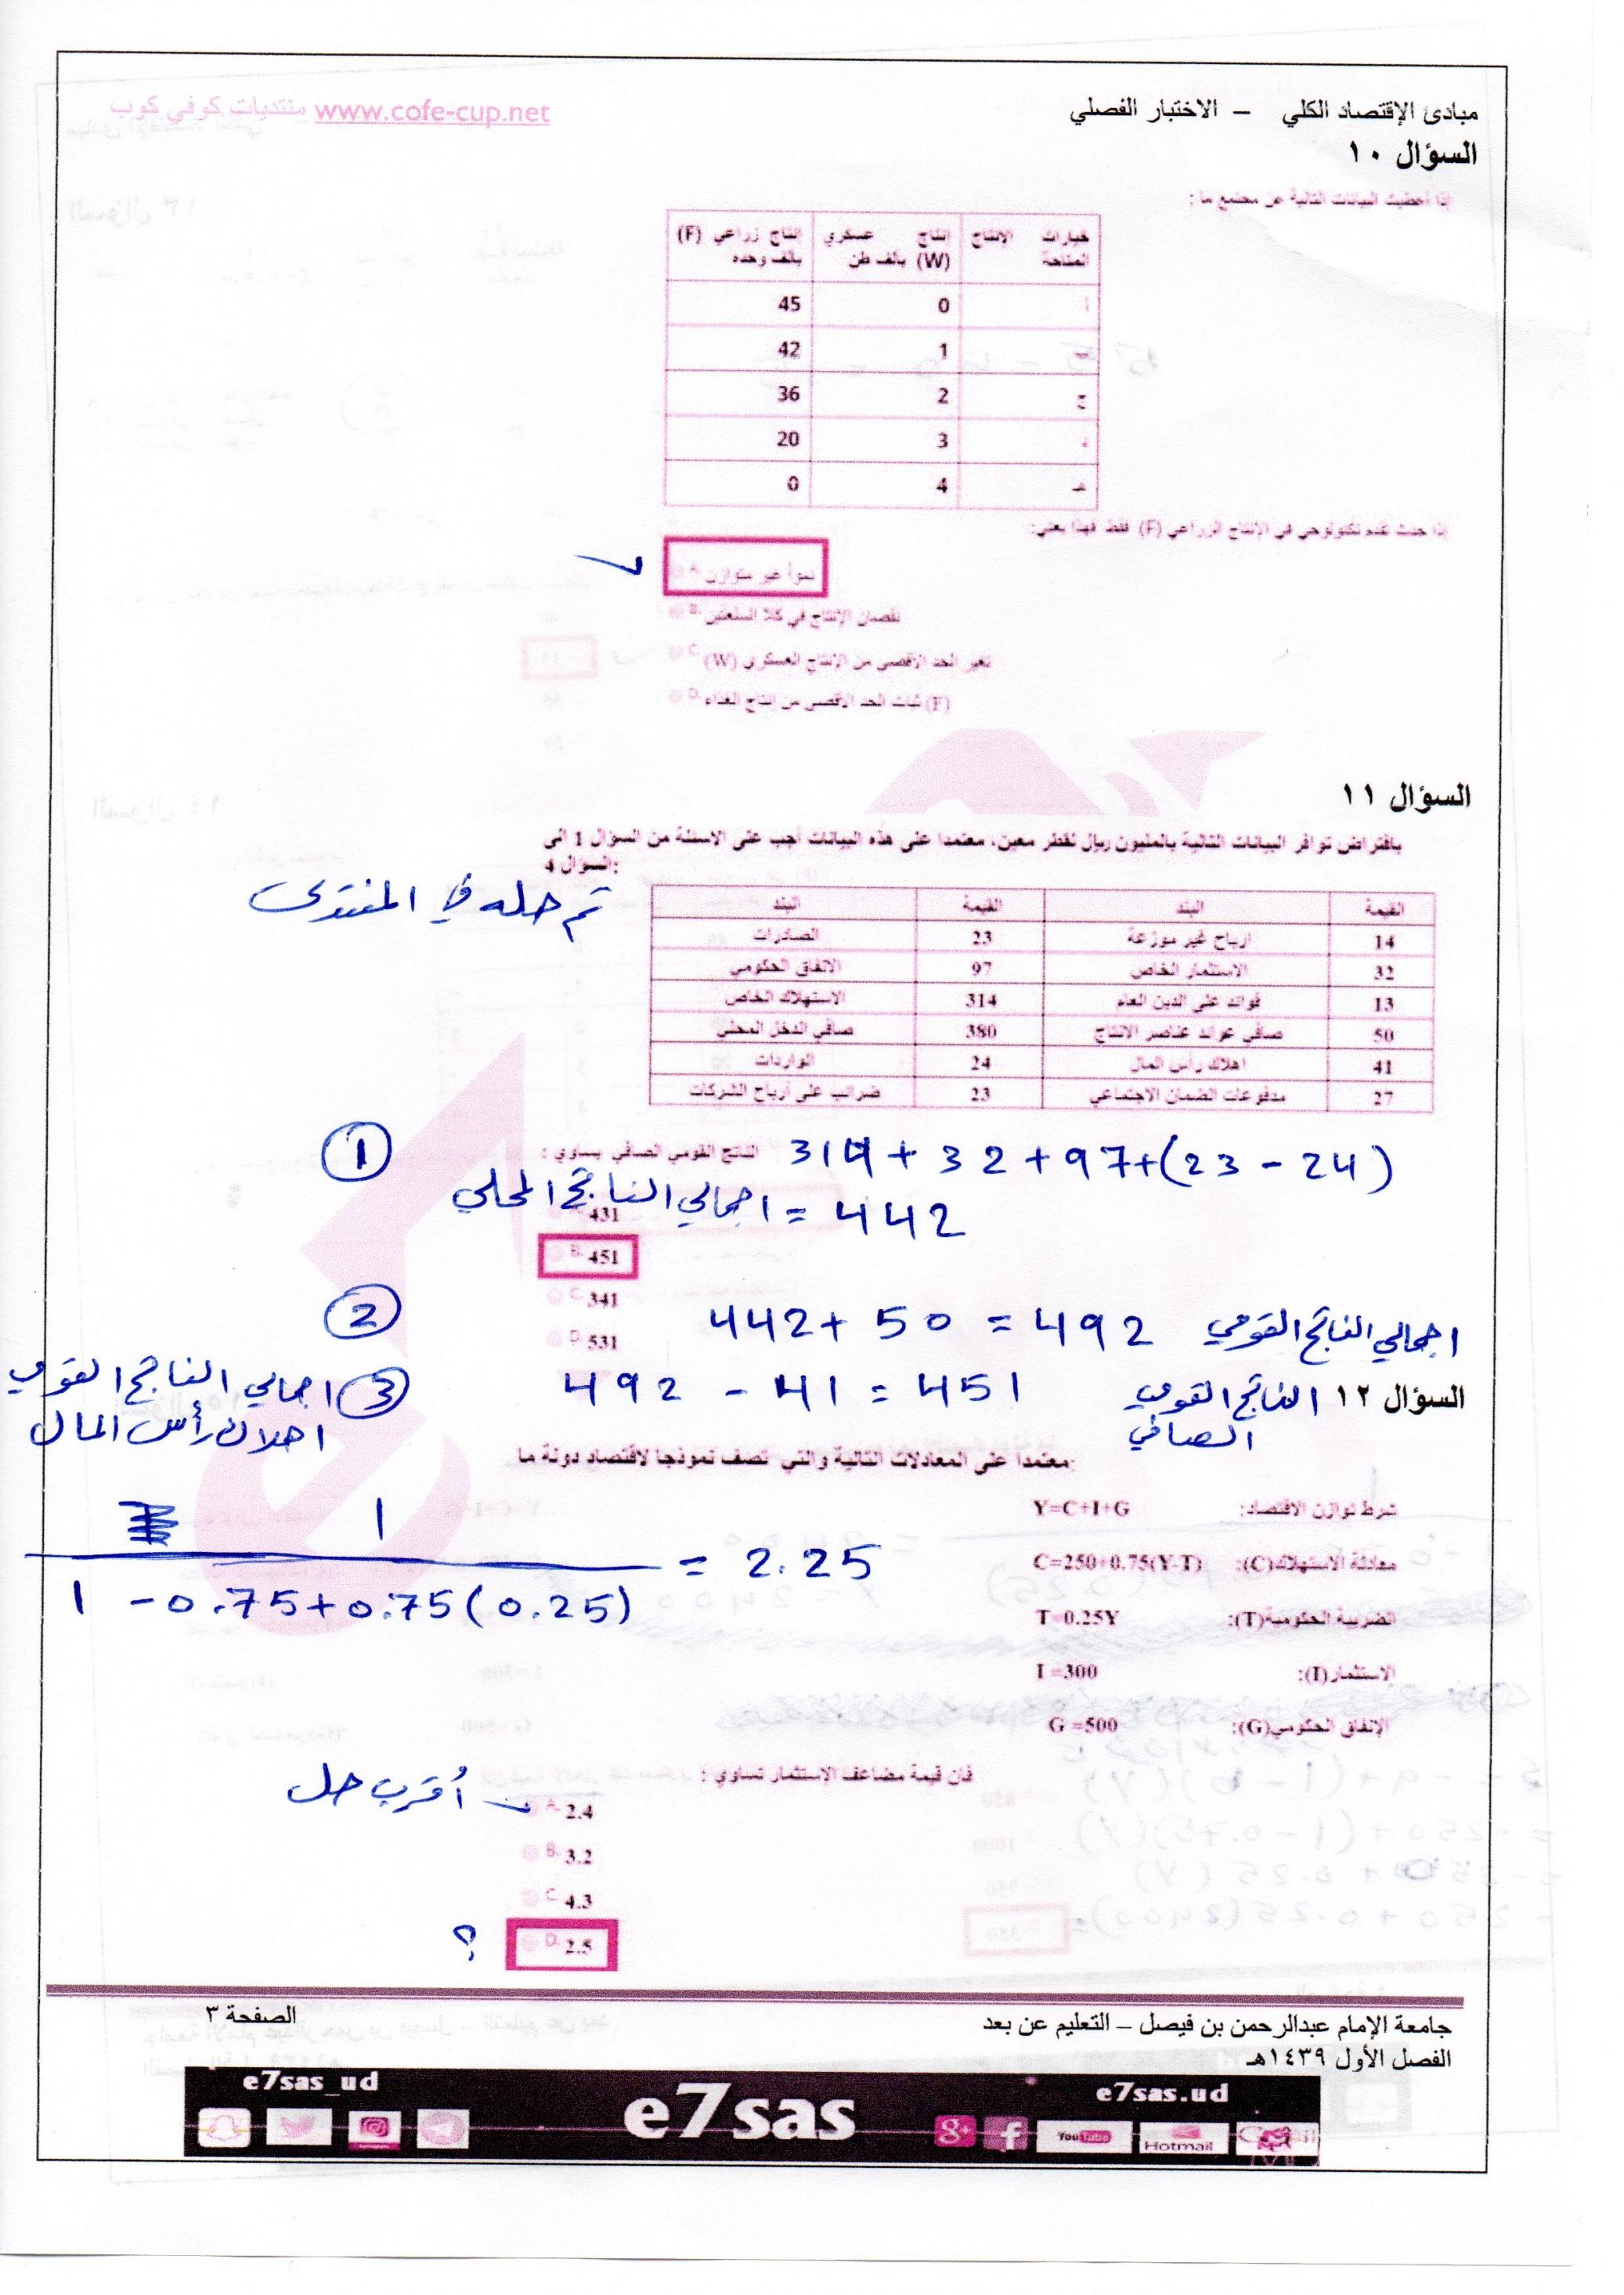 مبادئ الإقتصاد الكلي – الاختبار الفصلي
www.cofe-cup.net منتديات كوفي كوب
السؤال ١٠
إذا أعطيت البيانات التالية عن مجتمع ما :
خيارات الإنتاج المتاحة | إنتاج عسكري (W) بألف طن | إنتاج زراعي (F) بألف وحده
أ 0 45
ب 1 42
ج 2 36
د 3 20
هـ 4 0
إذا حدث تقدم تكنولوجي في الإنتاج الزراعي (F) فقط فهذا يعني:
A. نموا غير متوازن
B. نقصان الإنتاج في كلا السلعتين
C. تغير الحد الاقصى من الانتاج العسكري (W)
D. ثبات الحد الاقصى من إنتاج الغذاء (F)
السؤال ١١
بافتراض توافر البيانات التالية بالمليون ريال لقطر معين، معتمدا على هذه البيانات أجب على الاسئلة من السؤال 1 الى
السؤال 4:
تم حله في المنتدى
القيمة | البند | القيمة | البند
14 | ارباح غير موزعة | 23 | الصادرات
32 | الاستثمار الخاص | 97 | الانفاق الحكومي
13 | فوائد على الدين العام | 314 | الاستهلاك الخاص
50 | صافي عوائد عناصر الانتاج | 380 | صافي الدخل المحلي
41 | اهلاك رأس المال | 24 | الواردات
27 | مدفوعات الضمان الاجتماعي | 23 | ضرائب على أرباح الشركات
الناتج القومي الصافي يساوي :
① 314 + 32 + 97 + (23 - 24)
= 442 اجمالي الناتج المحلي
431
B. 451
C. 341
D. 531
② 442 + 50 = 492 اجمالي الناتج القومي
السؤال ١٢
③ 492 - 41 = 451 الناتج القومي الصافي
اجمالي الناتج القومي
اهلاك رأس المال
معتمدا على المعادلات التالية والتي تصف نموذجا لاقتصاد دولة ما:
شرط توازن الاقتصاد: Y=C+I+G
معادلة الاستهلاك(C): C=250+0.75(Y-T)
الضريبة الحكومية(T): T=0.25Y
الاستثمار(I): I =300
الإنفاق الحكومي(G): G =500
1
1 - 0.75 + 0.75 (0.25) = 2.25
فان قيمة مضاعف الإستثمار تساوي :
A. 2.4 أقرب حل
B. 3.2
C. 4.3
D. 2.5 ؟
جامعة الإمام عبدالرحمن بن فيصل – التعليم عن بعد
الصفحة ٣
الفصل الأول ١٤٣٩هـ
e7sas_ud
e7sas
e7sas.ud
You Tube
Hotmail